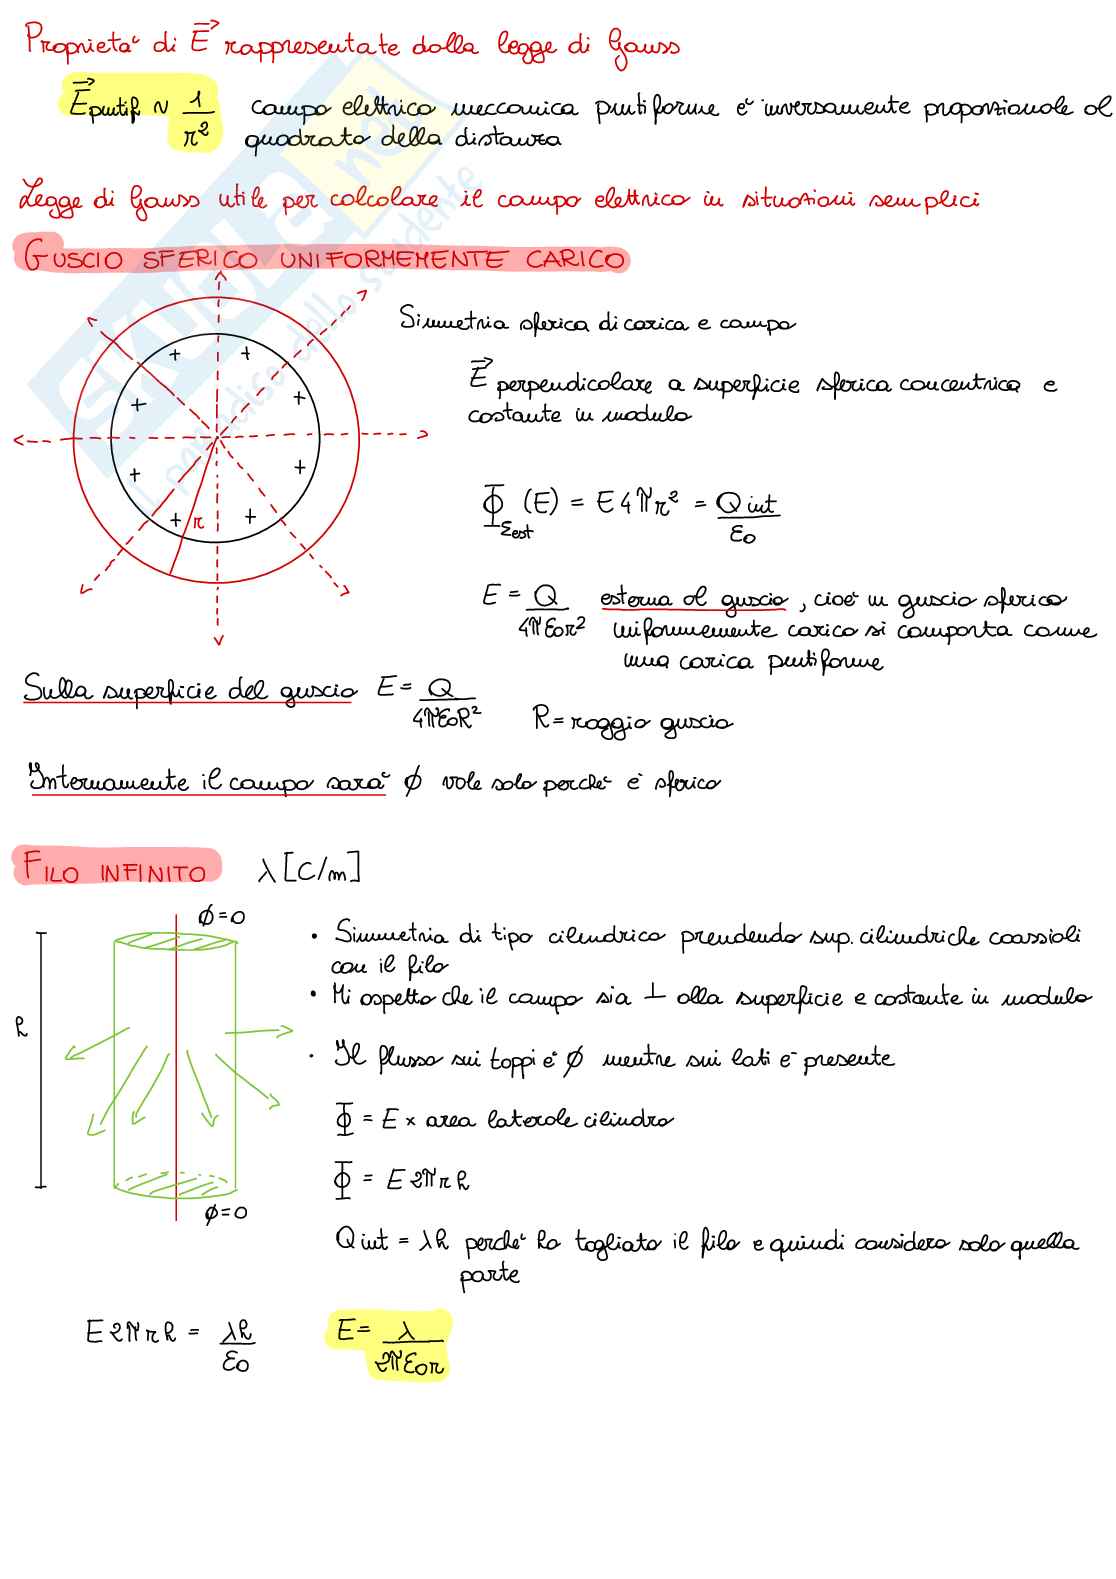 Proprietà di E⃗ rappresentate dalla legge di Gauss
E⃗ puntif ~ 1/r² campo elettrico meccanica puntiforme è inversamente proporzionale al
quadrato della distanza
Legge di Gauss utile per calcolare il campo elettrico in situazioni semplici
GUSCIO SFERICO UNIFORMEMENTE CARICO
Simmetria sferica di carica e campo
E⃗ perpendicolare a superficie sferica concentrica e
costante in modulo
Φ Σest (E) = E 4πr² = Q int/ε0
r
E = Q/4πε0r² esterna al guscio, cioè un guscio sferico
uniformemente carico si comporta come
una carica puntiforme
Sulla superficie del guscio E = Q/4πε0R² R = raggio guscio
Internamente il campo sarà ∅ vale solo perché è sferico
FILO INFINITO λ [C/m]
ϕ=0
• Simmetria di tipo cilindrico prendendo sup. cilindriche coassiali
con il filo
• Mi aspetto che il campo sia ⊥ alla superficie e costante in modulo
h
• Il flusso sui tappi è ∅ mentre sui lati è presente
Φ = E × area laterale cilindro
Φ = E 2πrh
ϕ=0
Q int = λh perché ho tagliato il filo e quindi considero solo quella
parte
E 2πrh = λh/ε0 E = λ/2πε0r
SKUOLA.net
il paradiso dello studente